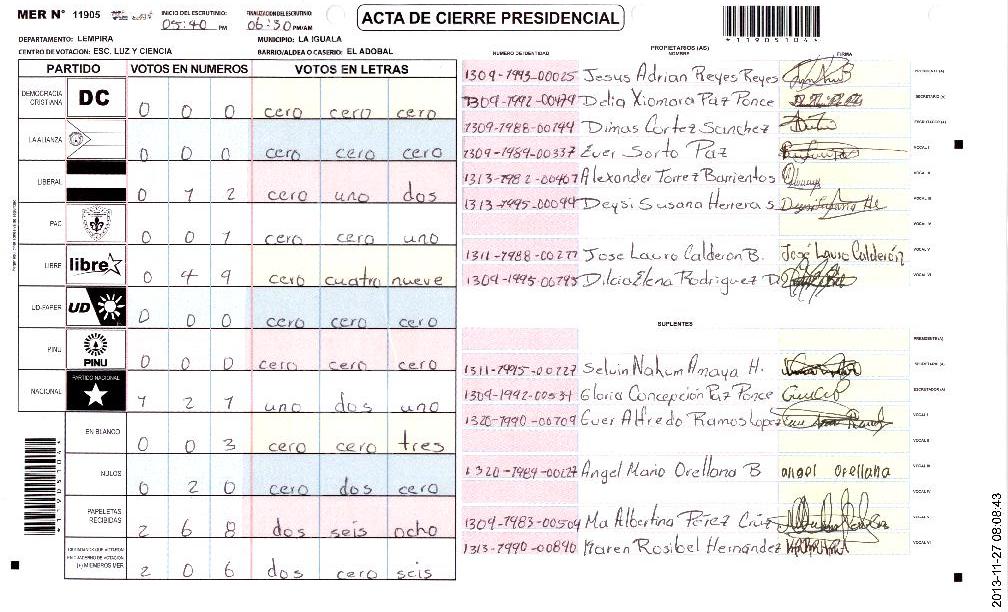 MER N° 11905
INICIO DEL ESCRUTINIO: 05:40 PM
FINALIZACION DEL ESCRUTINIO: 06:30 PM/AM
ACTA DE CIERRE PRESIDENCIAL
*11905104*
DEPARTAMENTO: LEMPIRA
MUNICIPIO: LA IGUALA
CENTRO DE VOTACION: ESC. LUZ Y CIENCIA
BARRIO/ALDEA O CASERIO: EL ADOBAL
PARTIDO VOTOS EN NUMEROS VOTOS EN LETRAS
DEMOCRACIA CRISTIANA DC 0 0 0 cero cero cero
LA ALIANZA 0 0 0 cero cero cero
LIBERAL 0 1 2 cero uno dos
PAC 0 0 1 cero cero uno
LIBRE libre 0 4 9 cero cuatro nueve
UD-FAPER UD 0 0 0 cero cero cero
PINU PINU 0 0 0 cero cero cero
NACIONAL PARTIDO NACIONAL 1 2 1 uno dos uno
EN BLANCO 0 0 3 cero cero tres
NULOS 0 2 0 cero dos cero
PAPELETAS RECIBIDAS 2 6 8 dos seis ocho
CIUDADANOS QUE VOTARON EN CUADERNO DE VOTACION (+) MIEMBROS MER 2 0 6 dos cero seis
*11905104*
PROPIETARIOS (AS)
NUMERO DE IDENTIDAD NOMBRE FIRMA
1309-1993-00025 Jesus Adrian Reyes Reyes PRESIDENTE (A)
1309-1992-00479 Delia Xiomara Paz Ponce SECRETARIO (A)
1309-1988-00194 Dimas Cortez Sanchez ESCRUTADOR (A)
1309-1989-00337 Ever Sorto Paz VOCAL I
1313-1982-00407 Alexander Torrez Barrientos VOCAL II
1313-1995-00094 Deysi Susana Herrera S VOCAL III
VOCAL IV
1311-1988-00277 Jose Lauro Calderon B. José Lauro Calderón VOCAL V
1309-1995-00795 Dilcia Elena Rodriguez D VOCAL VI
SUPLENTES
PRESIDENTE (A)
1311-1995-00227 Selvin Nahum Amaya H. SECRETARIO (A)
1309-1992-00531 Gloria Concepción Paz Ponce ESCRUTADOR (A)
1320-1990-00709 Ever Alfredo Ramos Lopez VOCAL I
VOCAL II
1320-1989-00127 Angel Mario Orellana B angel orellana VOCAL III
VOCAL IV
1309-1983-00504 Ma Albertina Pérez Cruz VOCAL V
1313-1990-00890 Karen Rosibel Hernández VOCAL VI
2013-11-27 08:08:43